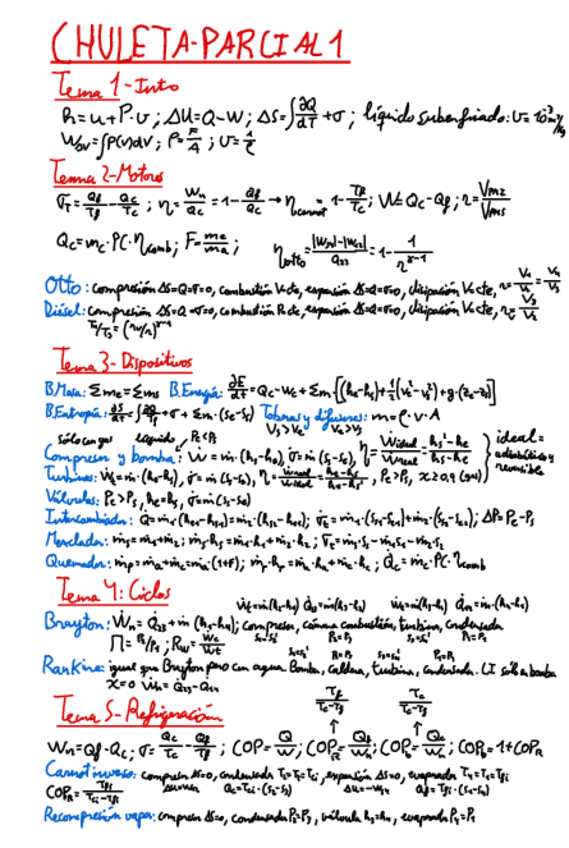 CHULETA-PARCIAL 1
Tema 1-Intro
h=u+P·v ; ΔU=Q-W ; ΔS=∫∂Q/dT+σ ; líquido subenfriado: v=10⁻³m³/kg
W_bv=∫P(v)dV ; P=F/A ; v=1/ρ
Tema 2-Motores
σ_T=Q_f/T_f-Q_c/T_c ; η=W_n/Q_c=1-Q_f/Q_c → η_carnot=1-T_f/T_c ; W=Q_c-Q_f ; r=V_PMI/V_PMS
Q_c=m_c·PC·η_comb ; F=m_c/m_a ; η_otto=(|W_34|-|W_12|)/Q_23=1-1/r^(γ-1)
Otto: compresión ΔS=Q=σ=0, combustión V cte, expansión ΔS=Q=σ=0, disipación V cte, r=V_1/V_2=V_4/V_3
Diésel: compresión ΔS=Q=σ=0, combustión P cte, expansión ΔS=Q=σ=0, disipación V cte, r_c=V_3/V_2
Tema 3-Dispositivos
B.Masa: Σm_e=Σm_s B.Energía: ∂E/dt=Q_c-W_e+Σm·[(h_e-h_s)+1/2(v_e²-v_s²)+g·(z_e-z_s)]
B.Entropía: ∂S/dt=∫∂Q/T+σ+Σm·(s_e-s_s) Toberas y difusores: m=ρ·v·A
V_s>V_e V_e>V_s
sólo con gas líquido P_e<P_s
Compresor y bomba: Ẇ=ṁ·(h_s-h_e), σ̇=ṁ(s_s-s_e), η=Ẇideal/Ẇreal=(h_s'-h_e)/(h_s-h_e) ideal= adiabático y reversible
Turbinas: Ẇ_t=ṁ·(h_e-h_s), σ̇=ṁ(s_s-s_e), η=Ẇreal/Ẇideal=(h_e-h_s)/(h_e-h_s'), P_e>P_s, x≥0,9 (gas)
Válvulas: P_e>P_s, h_e=h_s, σ̇=ṁ(s_s-s_e)
Intercambiador: Q=ṁ_1·(h_e1-h_s1)=ṁ_2·(h_s2-h_e2); σ̇_t=ṁ_1·(s_s1-s_e1)+ṁ_2·(s_s2-s_e2); ΔP=P_e-P_s
Mezclador: ṁ_s=ṁ_1+ṁ_2; ṁ_s·h_s=ṁ_1·h_1+ṁ_2·h_2; σ̇_t=ṁ_s·s_s-ṁ_1s_1-ṁ_2·s_2
Quemador: ṁ_p=ṁ_a+ṁ_c=ṁ_a·(1+F); ṁ_p·h_p=ṁ_a·h_a+ṁ_c·h_c; Q̇_c=ṁ_c·PC·η_comb
Tema 4: Ciclos
Brayton: Ẇ_n=Q̇_23+ṁ(h_1-h_4); compresor, cámara combustión, turbina, condensador
Π=P_2/P_1; R_w=Ẇc/Ẇt
Rankine: igual que Brayton pero con agua. Bomba, caldera, turbina, condensador. LI sólo en bomba
x=0 Ẇ_n=Q̇_23-Q̇_41
Tema 5-Refrigeración
T_f/(T_c-T_f) T_c/(T_c-T_f)
W_n=Q_f-Q_c ; σ=Q_c/T_c-Q_f/T_f ; COP=Q/W ; COP_R=Q_f/W_n ; COP_b=Q_c/W_n ; COP_b=1+COP_R
Carnot inverso: compresor ΔS=0, condensador T_2=T_3=T_ci, expansión ΔS=0, evaporador T_4=T_1=T_fi
COP_R=T_fi/(T_ci-T_fi) Q_c=T_ci·(s_2-s_3) Q_f=T_fi·(s_1-s_4)
Recompresión vapor: compresor ΔS=0, condensador P_2=P_3, válvula h_3=h_4, evaporador P_4=P_1